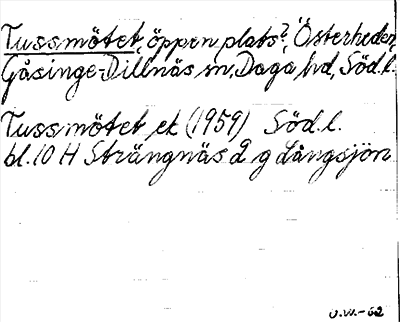 Tussmötet, öppen plats?, Österheden,
Gåsinge-Dillnäs sn, Daga hd, Söd.l.
Tussmötet ek (1959) Söd.l.
bl. 10 H Strängnäs 2 g Långsjön
O.W.-62